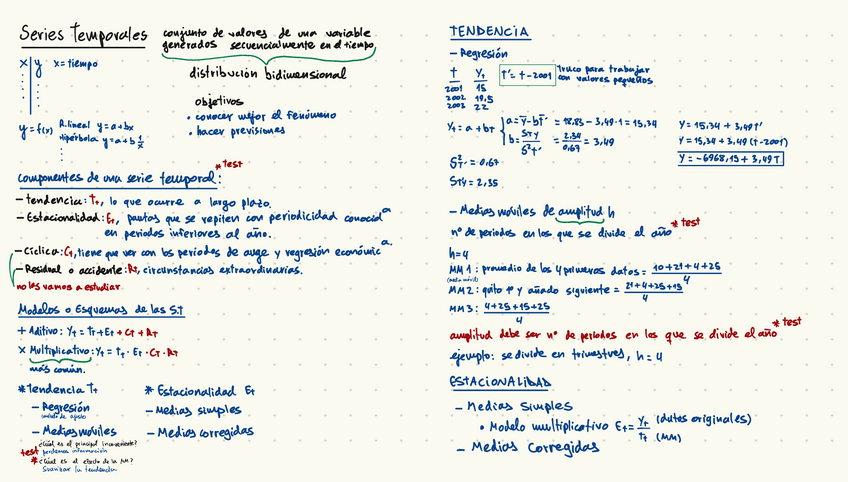 Series Temporales
conjunto de valores de una variable
generados secuencialmente en el tiempo,
x y x = tiempo
distribución bidimensional
objetivos
• conocer mejor el fenómeno
• hacer previsiones
y = f(x) R. lineal y = a + bx
Hipérbola y = a + b 1/x
componentes de una serie temporal: * test
- tendencia: Tt, lo que ocurre a largo plazo.
- Estacionalidad: Et, pautas que se repiten con periodicidad conocida
en periodos inferiores al año.
- Cíclica: Ct, tiene que ver con los periodos de auge y regresión económica.
- Residual o accidente: Rt, circunstancias extraordinarias.
no las vamos a estudiar
Modelos o Esquemas de las S.T
+ Aditivo: Yt = Tt + Et + Ct + Rt
x Multiplicativo: Yt = Tt · Et · Ct · Rt
más común.
* tendencia Tt
- Regresión
- Medias móviles
¿Cuál es el principal inconveniente?
test perdemos información
* ¿Cuál es el efecto de la MM?
Suavizar la tendencia
* Estacionalidad Et
- Medias simples
- Medias corregidas
TENDENCIA
- Regresión
T Yt
2001 15
2002 19,5
2003 22
t' = t - 2001 truco para trabajar
con valores pequeños
Yt = a + bt
a = y - bt' = 18,83 - 3,49 · 1 = 15,34
b = STY / S²t' = 2,34 / 0,67 = 3,49
S²T' = 0,67
STY = 2,35
Y = 15,34 + 3,49 t'
Y = 15,34 + 3,49 (t - 2001)
Y = -6968,15 + 3,49 T
- Medias móviles de amplitud h
nº de periodos en los que se divide el año * test
h = 4
MM1: promedio de los 4 primeros datos = 10+21+4+25 / 4
MM2: quito 1º y añado siguiente = 21+4+25+15 / 4
MM3: 4+25+15+25 / 4
amplitud debe ser nº de periodos en los que se divide el año * test
ejemplo: se divide en trimestres, h = 4
ESTACIONALIDAD
- Medias Simples
• Modelo multiplicativo Et = Yt / Tt (datos originales) (MM)
- Medias Corregidas